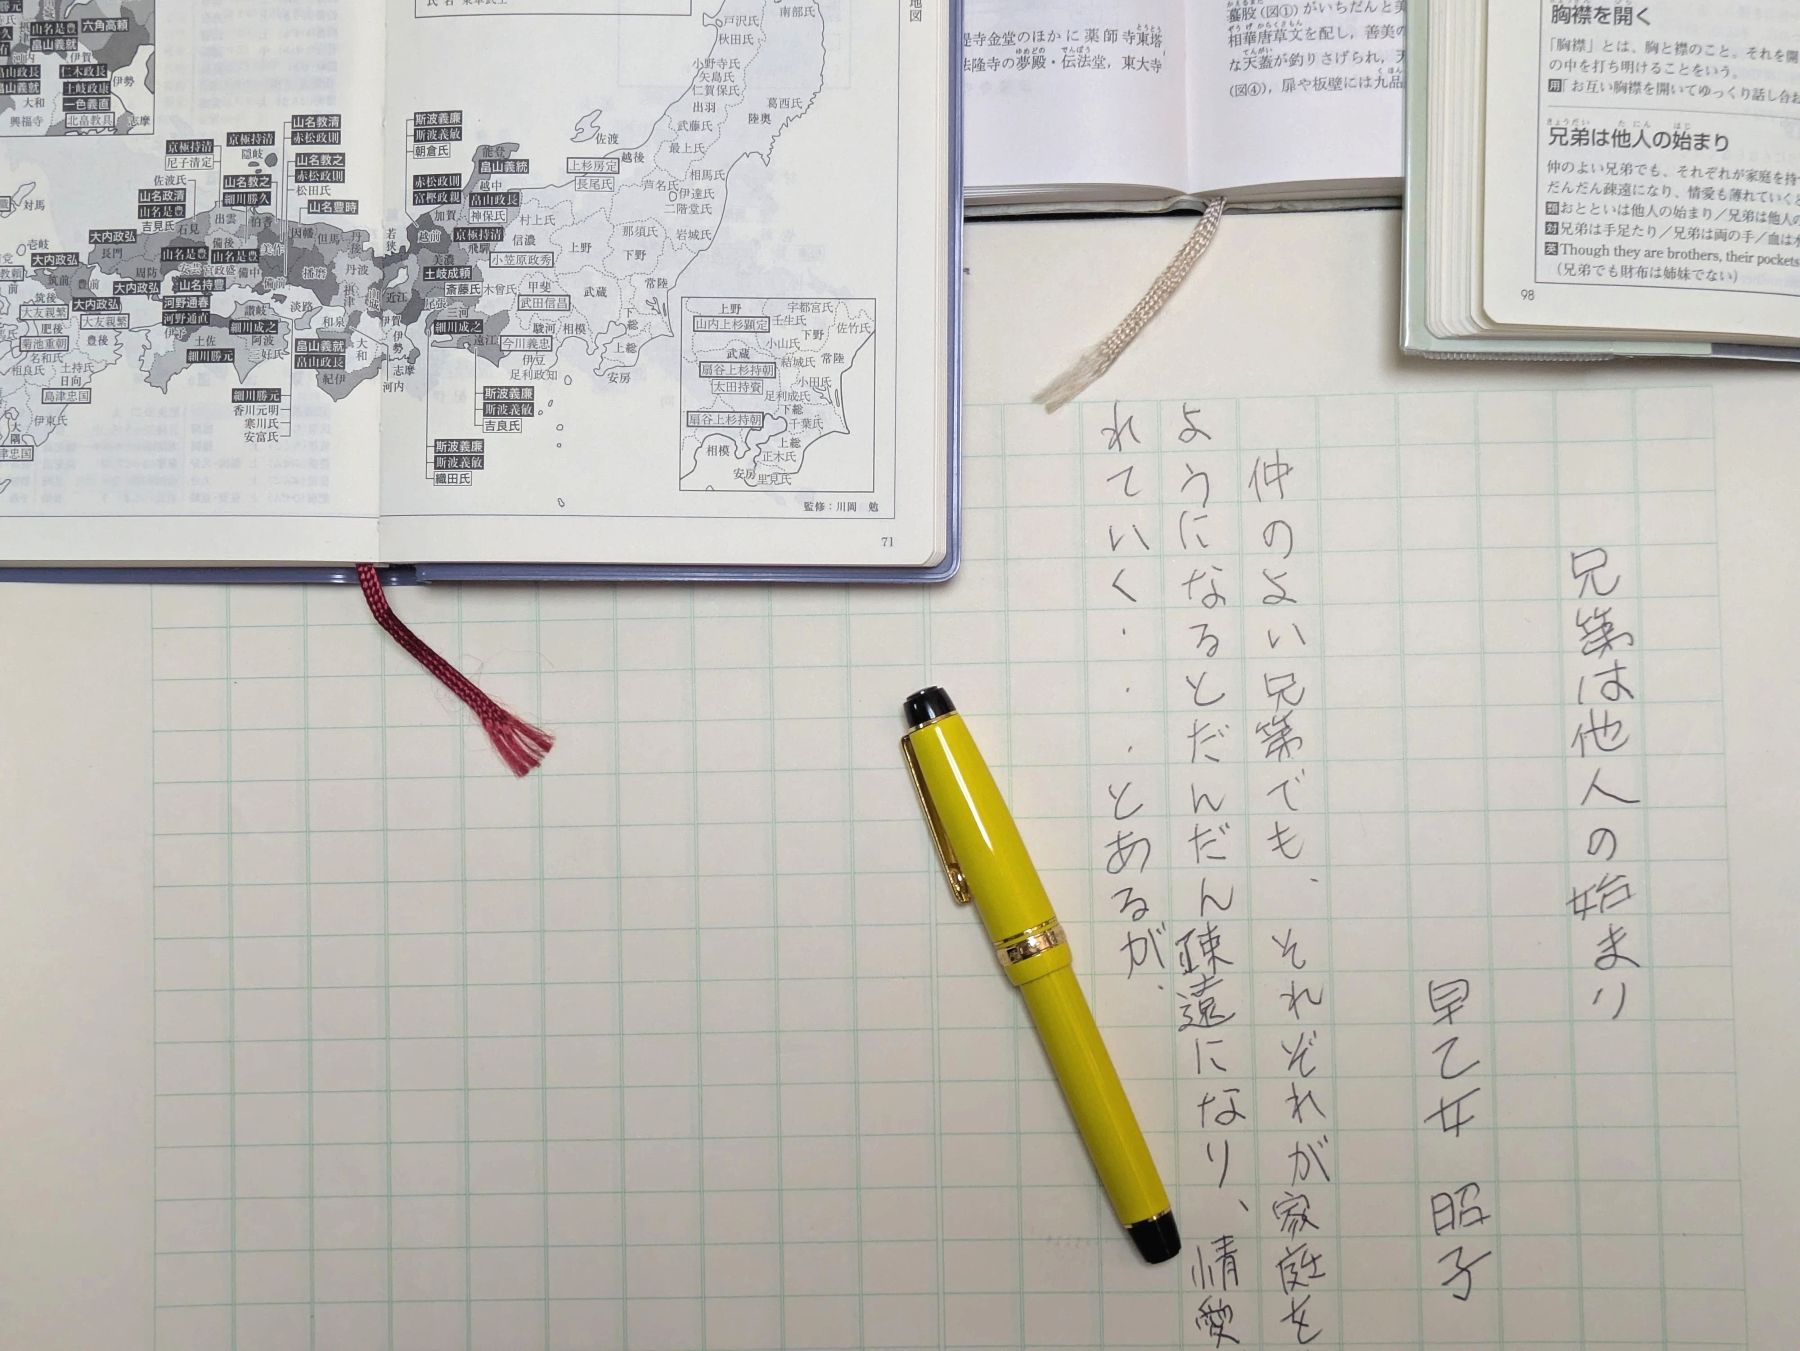 兄弟は他人の始まり
早乙女 昭子
仲のよい兄弟でも、それぞれが家庭を
ようになるとだんだん疎遠になり、情愛
れていく・・・とあるが、
胸襟を開く
「胸襟」とは、胸と襟のこと。それを開
の中を打ち明けることをいう。
用「お互い胸襟を開いてゆっくり話し合お
きょうだい たにん はじ
兄弟は他人の始まり
仲のよい兄弟でも、それぞれが家庭を持
だんだん疎遠になり、情愛も薄れていくと
類おとといは他人の始まり／兄弟は他人の
対兄弟は手足たり／兄弟は両の手／血は水
英Though they are brothers, their pockets
（兄弟でも財布は姉妹でない）
98
蟇股(図①)がいちだんと美
相華唐草文を配し，善美の
な天蓋が釣りさげられ，天
(図④)，扉や板壁には九品
是寺金堂のほかに薬師寺東塔
法隆寺の夢殿・伝法堂，東大寺
地図
南部氏
戸沢氏
秋田氏
小野寺氏
矢島氏
仁賀保氏
出羽
葛西氏
陸奥
武藤氏
最上氏
相馬氏
伊達氏
二階堂氏
芦名氏
岩城氏
那須氏
佐渡
越後
上杉房定
長尾氏
斯波義廉
斯波義敏
朝倉氏
能登
畠山義統
越中
畠山政長
神保氏
赤松政則
富樫政親
加賀
越前
京極持清
飛驒
村上氏
信濃
小笠原政秀
木曽氏
上野
下野
常陸
武蔵
下総
上総
安房
甲斐
武田信昌
駿河
相模
伊豆
足利政知
今川義忠
遠江
三河
尾張
細川成之
美濃
土岐成頼
斎藤氏
斯波義廉
斯波義敏
吉良氏
斯波義廉
斯波義敏
織田氏
若狭
近江
山城
伊賀
伊勢
志摩
河内
大和
和泉
摂津
丹波
丹後
但馬
播磨
淡路
紀伊
畠山義就
畠山政長
六角高頼
山名是豊
畠山義就
河内
伊賀
畠山政長
仁木政長
伊勢
畠山義就
土岐政康
大和
一色義直
興福寺
北畠教具
志摩
京極持清
尼子清定
京極持清
隠岐
山名教清
赤松政則
山名教之
赤松政則
松田氏
山名教之
細川勝久
山名豊時
佐波氏
山名政清
山名是豊
吉見氏
石見
出雲
伯耆
因幡
美作
備後
備中
備前
安芸
山名是豊
山名是豊
宮政盛
山名持豊
大内政弘
長門
周防
大内政弘
大内政弘
大内政弘
河野通春
河野通直
伊予
讃岐
細川成之
阿波
三好氏
土佐
細川勝元
細川勝元
香川元明
寒川氏
安富氏
対馬
壱岐
筑前
豊前
筑後
大友親繁
大友親繁
豊後
肥後
菊池重朝
名和氏
相良氏
土持氏
日向
島津忠国
伊東氏
大隅
津忠国
上野
山内上杉顕定
宇都宮氏
壬生氏
下野
佐竹氏
小山氏
武蔵
結城氏
常陸
扇谷上杉持朝
太田持資
小田氏
足利成氏
扇谷上杉持朝
下総
千葉氏
上総
相模
正木氏
安房
里見氏
監修：川岡 勉
71